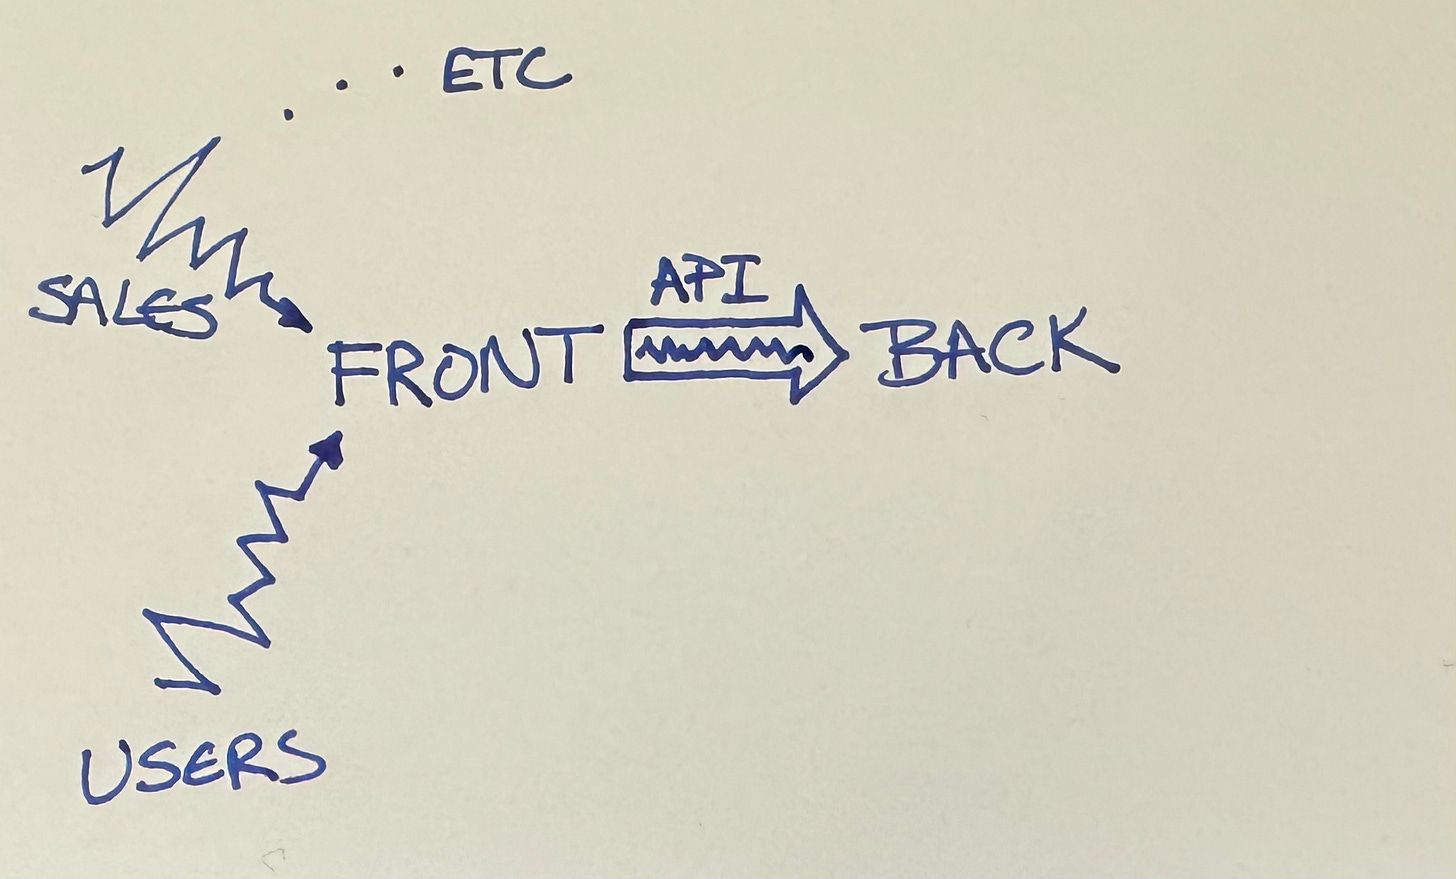 ETC
SALES
API
FRONT
BACK
USERS